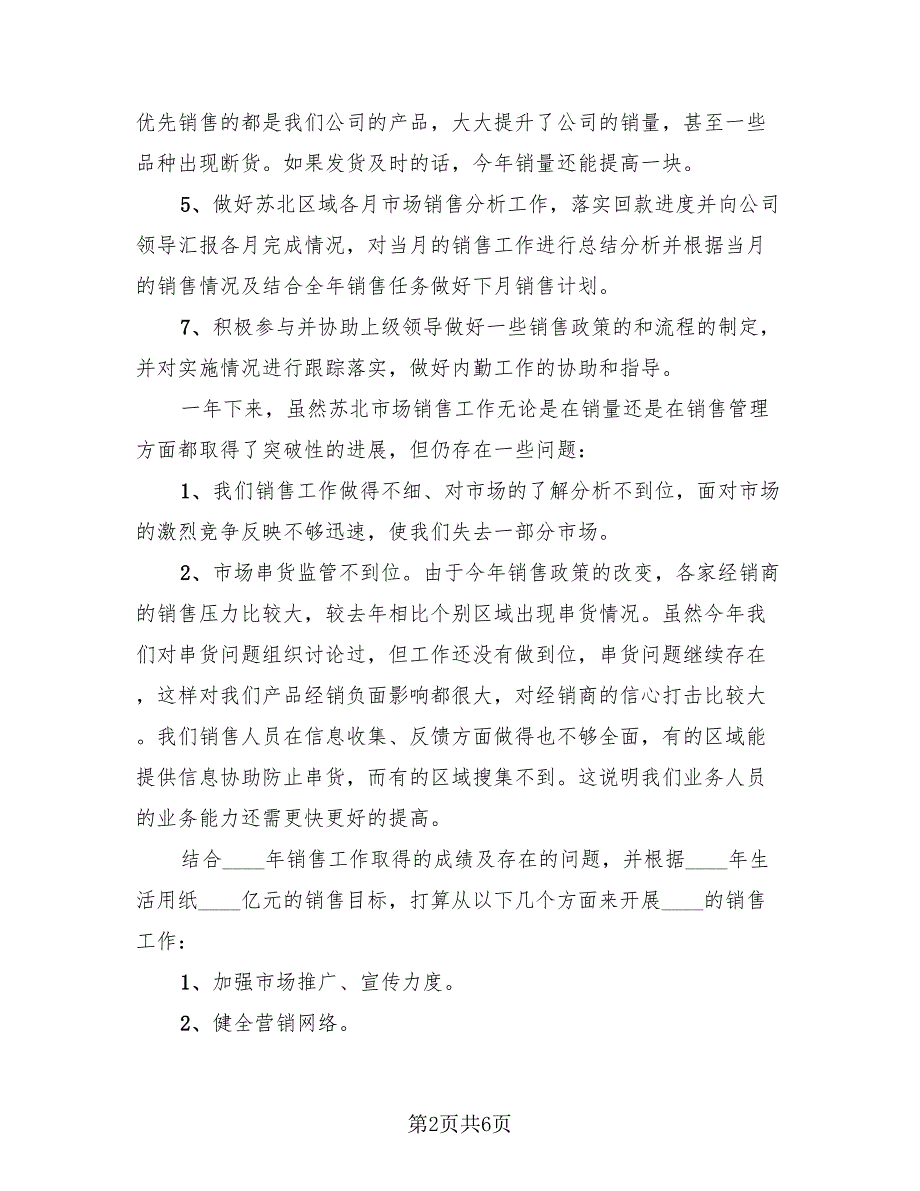 优先销售的都是我们公司的产品，大大提升了公司的销量，甚至一些
品种出现断货。如果发货及时的话，今年销量还能提高一块。
5、做好苏北区域各月市场销售分析工作，落实回款进度并向公司
领导汇报各月完成情况，对当月的销售工作进行总结分析并根据当月
的销售情况及结合全年销售任务做好下月销售计划。
7、积极参与并协助上级领导做好一些销售政策的和流程的制定，
并对实施情况进行跟踪落实，做好内勤工作的协助和指导。
一年下来，虽然苏北市场销售工作无论是在销量还是在销售管理
方面都取得了突破性的进展，但仍存在一些问题：
1、我们销售工作做得不细、对市场的了解分析不到位，面对市场
的激烈竞争反映不够迅速，使我们失去一部分市场。
2、市场串货监管不到位。由于今年销售政策的改变，各家经销商
的销售压力比较大，较去年相比个别区域出现串货情况。虽然今年我
们对串货问题组织讨论过，但工作还没有做到位，串货问题继续存在
，这样对我们产品经销负面影响都很大，对经销商的信心打击比较大
。我们销售人员在信息收集、反馈方面做得也不够全面，有的区域能
提供信息协助防止串货，而有的区域搜集不到。这说明我们业务人员
的业务能力还需更快更好的提高。
结合____年销售工作取得的成绩及存在的问题，并根据____年生
活用纸____亿元的销售目标，打算从以下几个方面来开展____的销售
工作：
1、加强市场推广、宣传力度。
2、健全营销网络。
第2页共6页